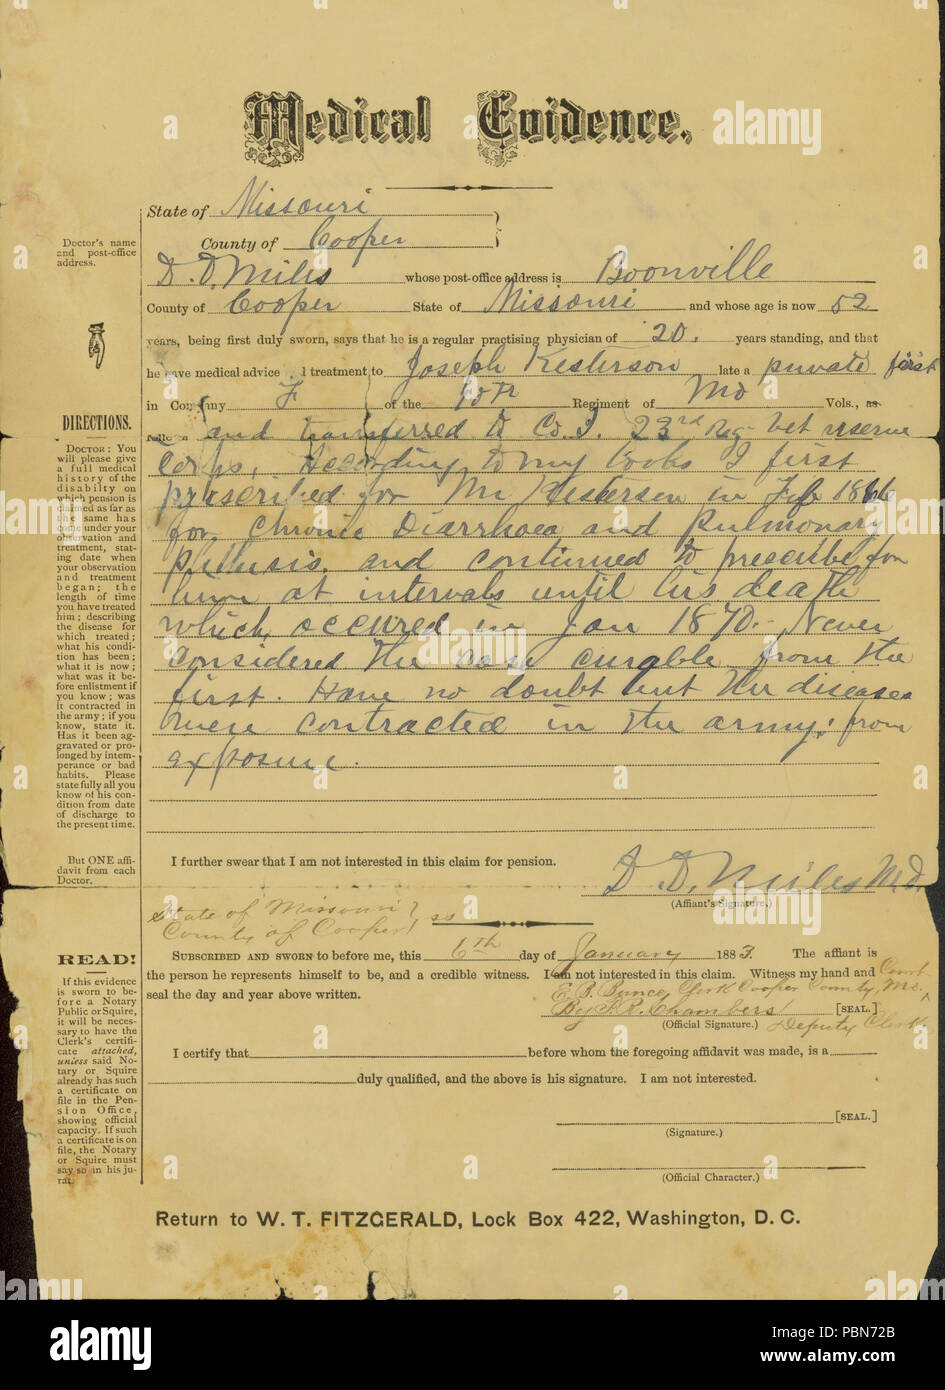 Medical Evidence.
State of Missouri
County of Cooper
Doctor's name
and post-office
address.
D. D. Miles whose post-office address is Boonville
County of Cooper State of Missouri and whose age is now 52
years, being first duly sworn, says that he is a regular practising physician of 20. years standing, and that
he gave medical advice treatment to Joseph Kesterson late a private first
in Company F of the Regiment of Mo Vols., as
follows and transferred to Co. I. 23rd Reg vet reserve
Corps. According to my books I first
prescribed for Mr Kesterson in Feb 1866
for Chronic Diarrhoea and Pulmonary
Pthisis, and continued to prescribe for
him at intervals until his death
which occured in Jan 1870. Never
considered the case curable from the
first. Have no doubt but the diseases
were contracted in the army; from
exposure.
DIRECTIONS.
DOCTOR: You
will please give
a full medical
history of the
disabilty on
which pension is
claimed as far as
the same has
come under your
observation and
treatment, stat-
ing date when
your observation
and treatment
began; the
length of time
you have treated
him; describing
the disease for
which treated;
what his condi-
tion has been;
what it is now;
what was it be-
fore enlistment if
you know; was
it contracted in
the army; if you
know, state it.
Has it been ag-
gravated or pro-
longed by intem-
perance or bad
habits. Please
state fully all you
know of his con-
dition from date
of discharge to
the present time.
But ONE affi-
davit from each
Doctor.
I further swear that I am not interested in this claim for pension.
D. D. Miles M.D.
(Affiant's Signature.)
State of Missouri
County of Cooper ss
SUBSCRIBED AND SWORN to before me, this 6th day of January 1883. The affiant is
the person he represents himself to be, and a credible witness. I am not interested in this claim. Witness my hand and Court
seal the day and year above written.
E. B. Bunce, Clerk Cooper County, Mo.
By R. Chambers [SEAL.]
(Official Signature.) Deputy Clerk
READ!
If this evidence
is sworn to be-
fore a Notary
Public or Squire,
it will be neces-
sary to have the
Clerk's certifi-
cate attached,
unless said No-
tary or Squire
already has such
a certificate on
file in the Pen-
sion Office,
showing official
capacity. If such
a certificate is on
file, the Notary
or Squire must
say so in his ju-
rat.
I certify that before whom the foregoing affidavit was made, is a
duly qualified, and the above is his signature. I am not interested.
[SEAL.]
(Signature.)
(Official Character.)
Return to W. T. FITZGERALD, Lock Box 422, Washington, D. C.
alamy
a
a
a
a
alamy
Image ID: PBN72B
www.alamy.com